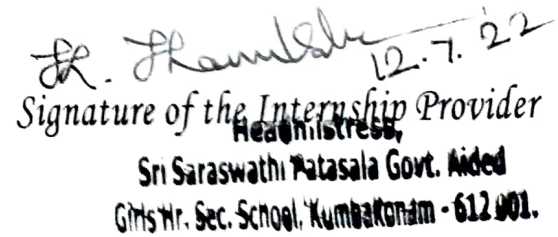 12.7.22
Signature of the Internship Provider
Headmistress,
Sri Saraswathi Patasala Govt. Aided
Girls Hr. Sec. School, Kumbakonam - 612 001.